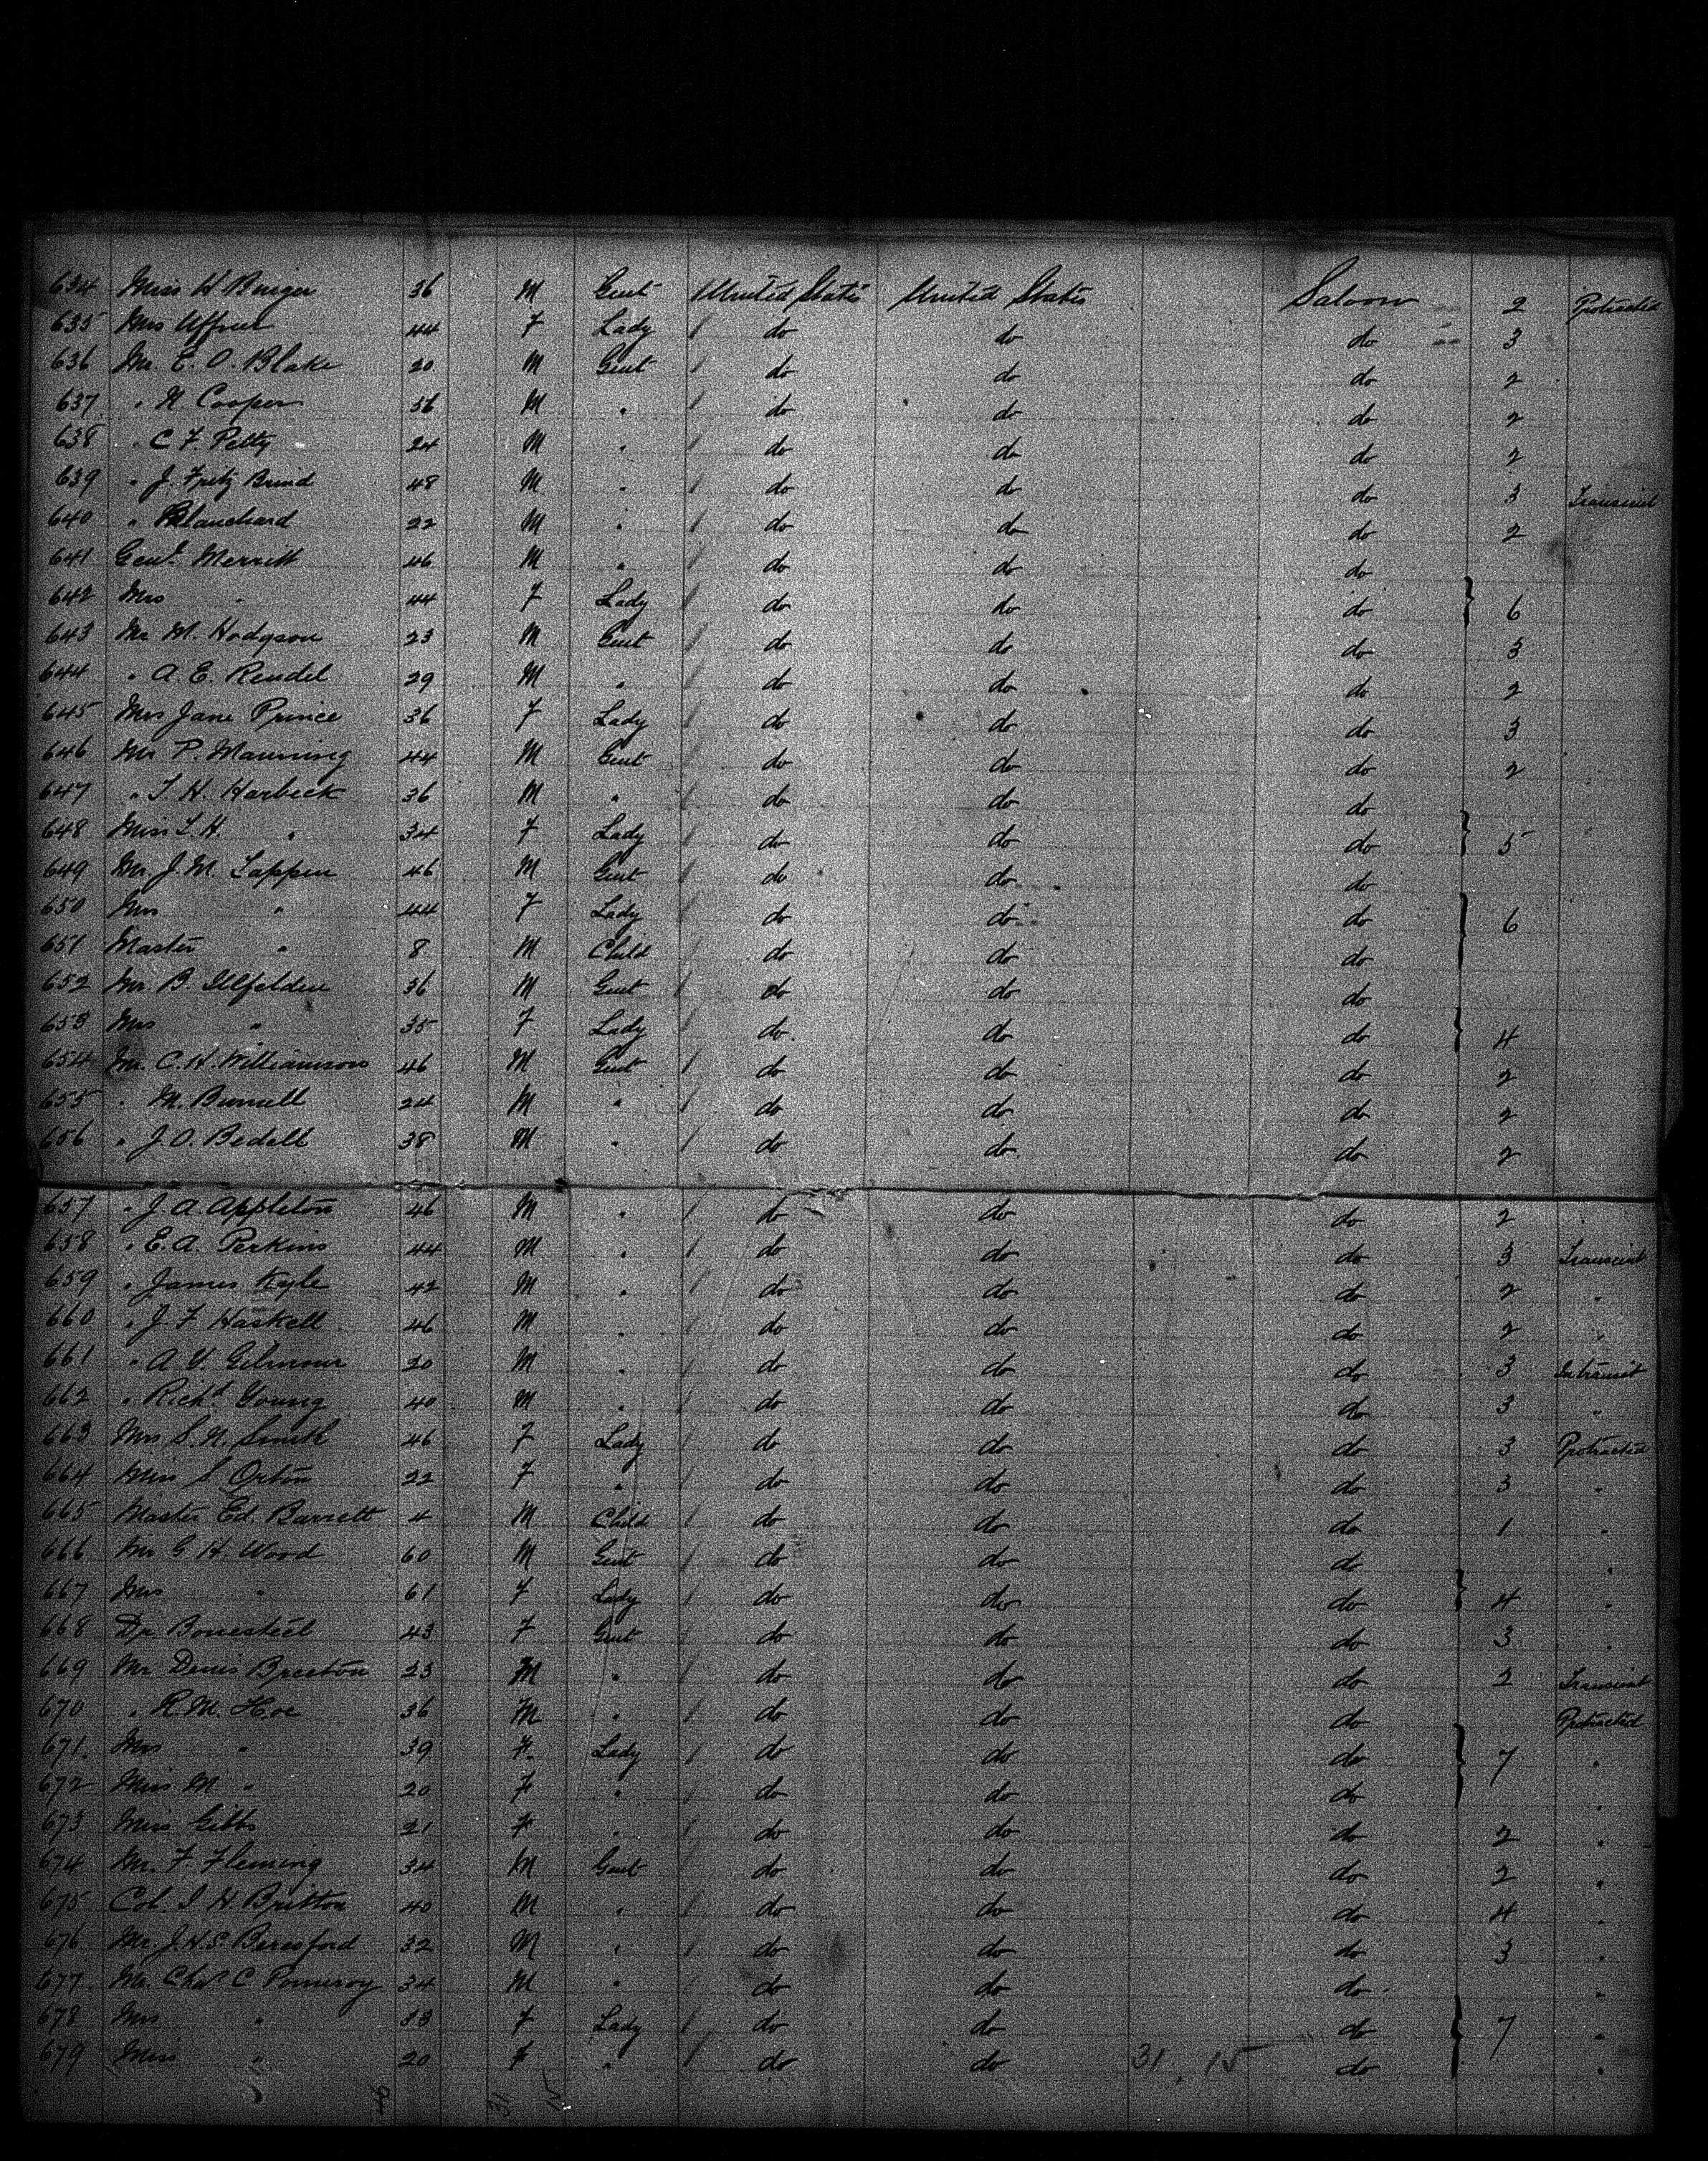 634 Miss H Burger 36 M Gent United States United States Saloon 2 Protracted
635 Mrs Uffner 44 F Lady do do do 3
636 Mr. E. O. Blake 20 M Gent do do do 2
637 " N Cooper 36 M " do do do 2
638 " C F. Petty 24 M " do do do 2
639 " J. Fritz Brind 48 M " do do do 3 Transient
640 " Blanchard 22 M " do do do 2
641 Genl. Merritt 46 M " do do do
642 Mrs " 44 F Lady do do do } 6
643 Mr M. Hodgson 23 M Gent do do do 3
644 " A. E. Rendel 29 M " do do do 2
645 Mrs Jane Prince 36 F Lady do do do 3
646 Mr P. Manning 44 M Gent do do do 2
647 " T. H. Harbeck 36 M " do do do
648 Miss L. H. " 34 F Lady do do do } 5
649 Mr. J. M. Lappen 46 M Gent do do do
650 Mrs " 44 F Lady do do do } 6
651 Master " 8 M Child do do do
652 Mr. B. Illfelden 36 M Gent do do do
653 Mrs " 35 F Lady do do do } 4
654 Mr. C. H. Williamson 46 M Gent do do do 2
655 " M. Burrell 24 M " do do do 2
656 " J. O. Bedell 38 M " do do do 2
657 " J. A. Appleton 46 M " do do do 2
658 " E. A. Perkins 44 M " do do do 3 Transient
659 " James Kyle 42 M " do do do 2 "
660 " J. F Haskell 46 M " do do do 2 "
661 " A Y. Gilmour 20 M " do do do 3 In transit
662 " Richd Young 40 M " do do do 3 "
663 Mrs S. N. Smith 46 F Lady do do do 3 Protracted
664 Miss S. Orton 22 F " do do do 3 "
665 Master Ed. Barrett 4 M Child do do do 1 "
666 Mr G. H. Wood 60 M Gent do do do "
667 Mrs " 61 F Lady do do do } 4 "
668 Dr Bonesteel 43 F Gent do do do 3 "
669 Mr. Denis Breeton 23 M " do do do 2 Transient
670 " R. M. Hoe 36 M " do do do Protracted
671 Mrs " 39 F. Lady do do do } 7 "
672 Miss M " 20 F " do do do "
673 Miss Gibbs 21 F " do do do 2 "
674 Mr. F. Fleming 34 M Gent do do do 2 "
675 Col. I H Britton 40 M " do do do 4 "
676 Mr. J. H. S. Beresford 32 M " do do do 3 "
677 Mr. Chas. C Pomeroy 34 M " do do do "
678 Mrs " 33 F Lady do do do } 7 "
679 Miss " 20 F " do do 31. 15 do "
31 15